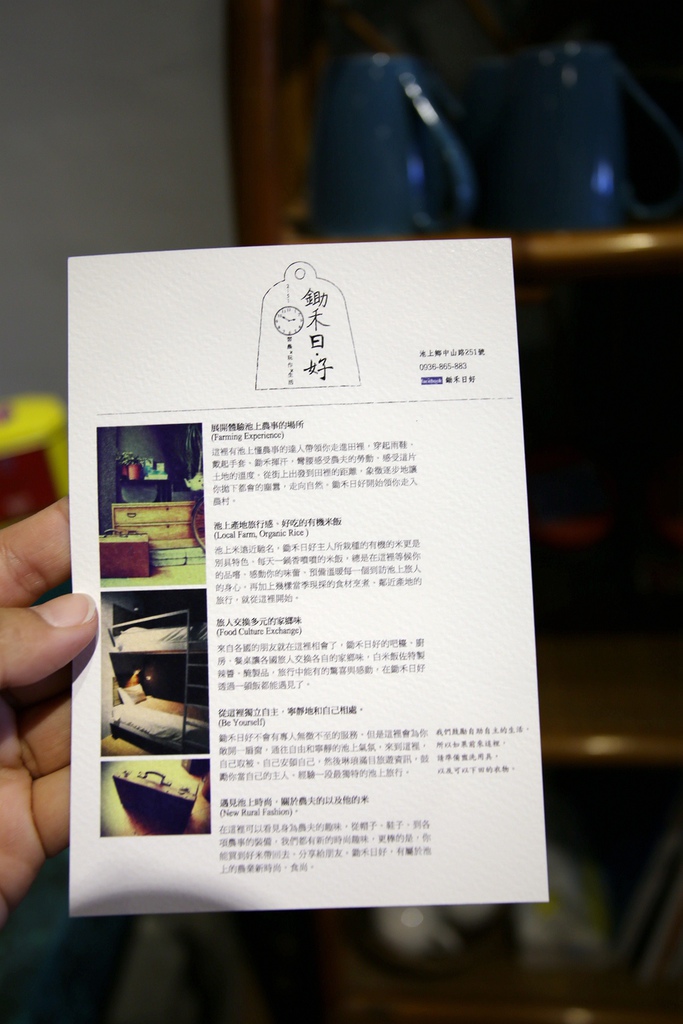 鋤禾日·好
池上鄉中山路251號
0936-865-883
facebook 鋤禾日好
展開體驗池上農事的場所
(Farming Experience)
這裡有池上懂農事的達人帶領你走進田裡，穿起雨鞋、
戴起手套、鋤禾揮汗，彎腰感受農夫的勞動，感受這片
土地的溫度，從街上出發到田裡的距離，象徵逐步地讓
你拋下都會的塵囂，走向自然。鋤禾日好開始領你走入
農村。
池上產地旅行感，好吃的有機米飯
(Local Farm, Organic Rice )
池上米遠近馳名，鋤禾日好主人所栽種的有機的米更是
別具特色，每天一鍋香噴噴的米飯，總是在這裡等候你
的品嚐，感動你的味蕾、預備溫暖每一個到訪池上旅人
的身心。再加上幾樣當季現採的食材烹煮，鄰近產地的
旅行，就從這裡開始。
旅人交換多元的家鄉味
(Food Culture Exchange)
來自各國的朋友就在這裡相會了，鋤禾日好的吧檯、廚
房、餐桌讓各國旅人交換各自的家鄉味，白米飯佐特製
辣醬、醃製品，旅行中能有的驚喜與感動，在鋤禾日好
透過一頓飯都能遇見了。
從這裡獨立自主，寧靜地和自己相處。
(Be Yourself)
鋤禾日好不會有專人無微不至的服務，但是這裡會為你
敞開一扇窗，通往自由和寧靜的池上氣氛，來到這裡，
自己取被、自己安頓自己，然後琳瑯滿目旅遊資訊，鼓
勵你當自己的主人，經驗一段最獨特的池上旅行。
我們鼓勵自助自主的生活，
所以如果前來這裡，
請準備盥洗用具，
以及可以下田的衣物。
遇見池上時尚，關於農夫的以及他的米
(New Rural Fashion)。
在這裡可以看見身為農夫的趣味，從帽子、鞋子，到各
項農事的裝備，我們都有新的時尚趣味，更棒的是，你
能買到好米帶回去，分享給朋友。鋤禾日好，有屬於池
上的農業新時尚、食尚。